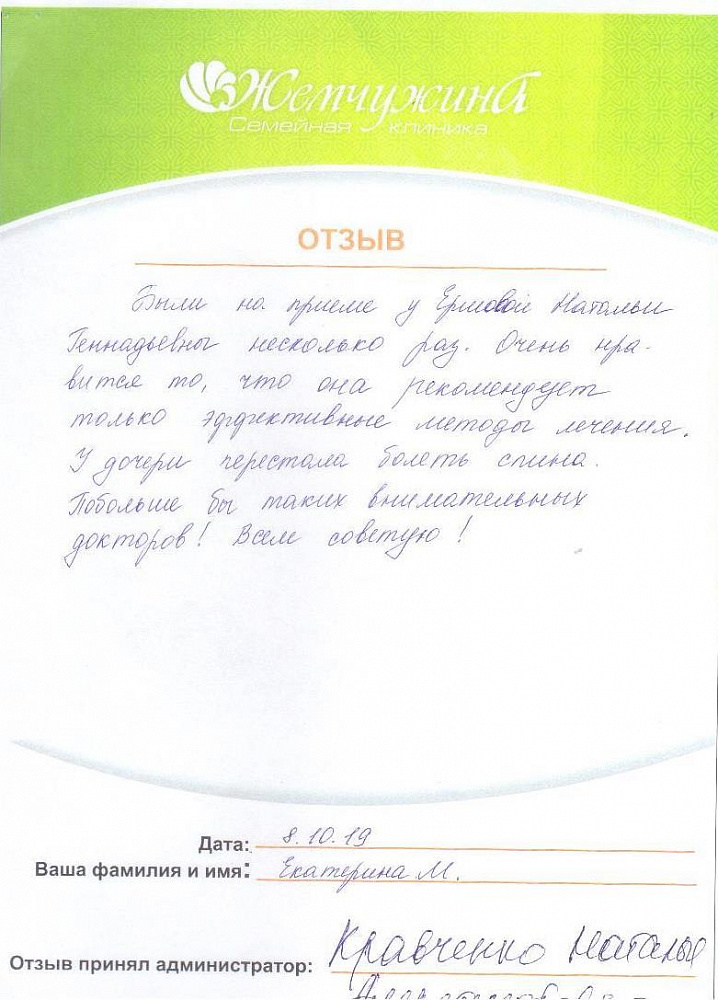 Жемчужина
Семейная клиника
ОТЗЫВ
Были на приеме у Ермовой Натальи
Геннадьевны несколько раз. Очень нра-
вится то, что она рекомендует
только эффективные методы лечения.
У дочери перестала болеть спина.
Побольше бы таких внимательных
докторов! Всем советую!
Дата: 8.10.19
Ваша фамилия и имя: Екатерина М.
Отзыв принял администратор: Кравченко Наталья